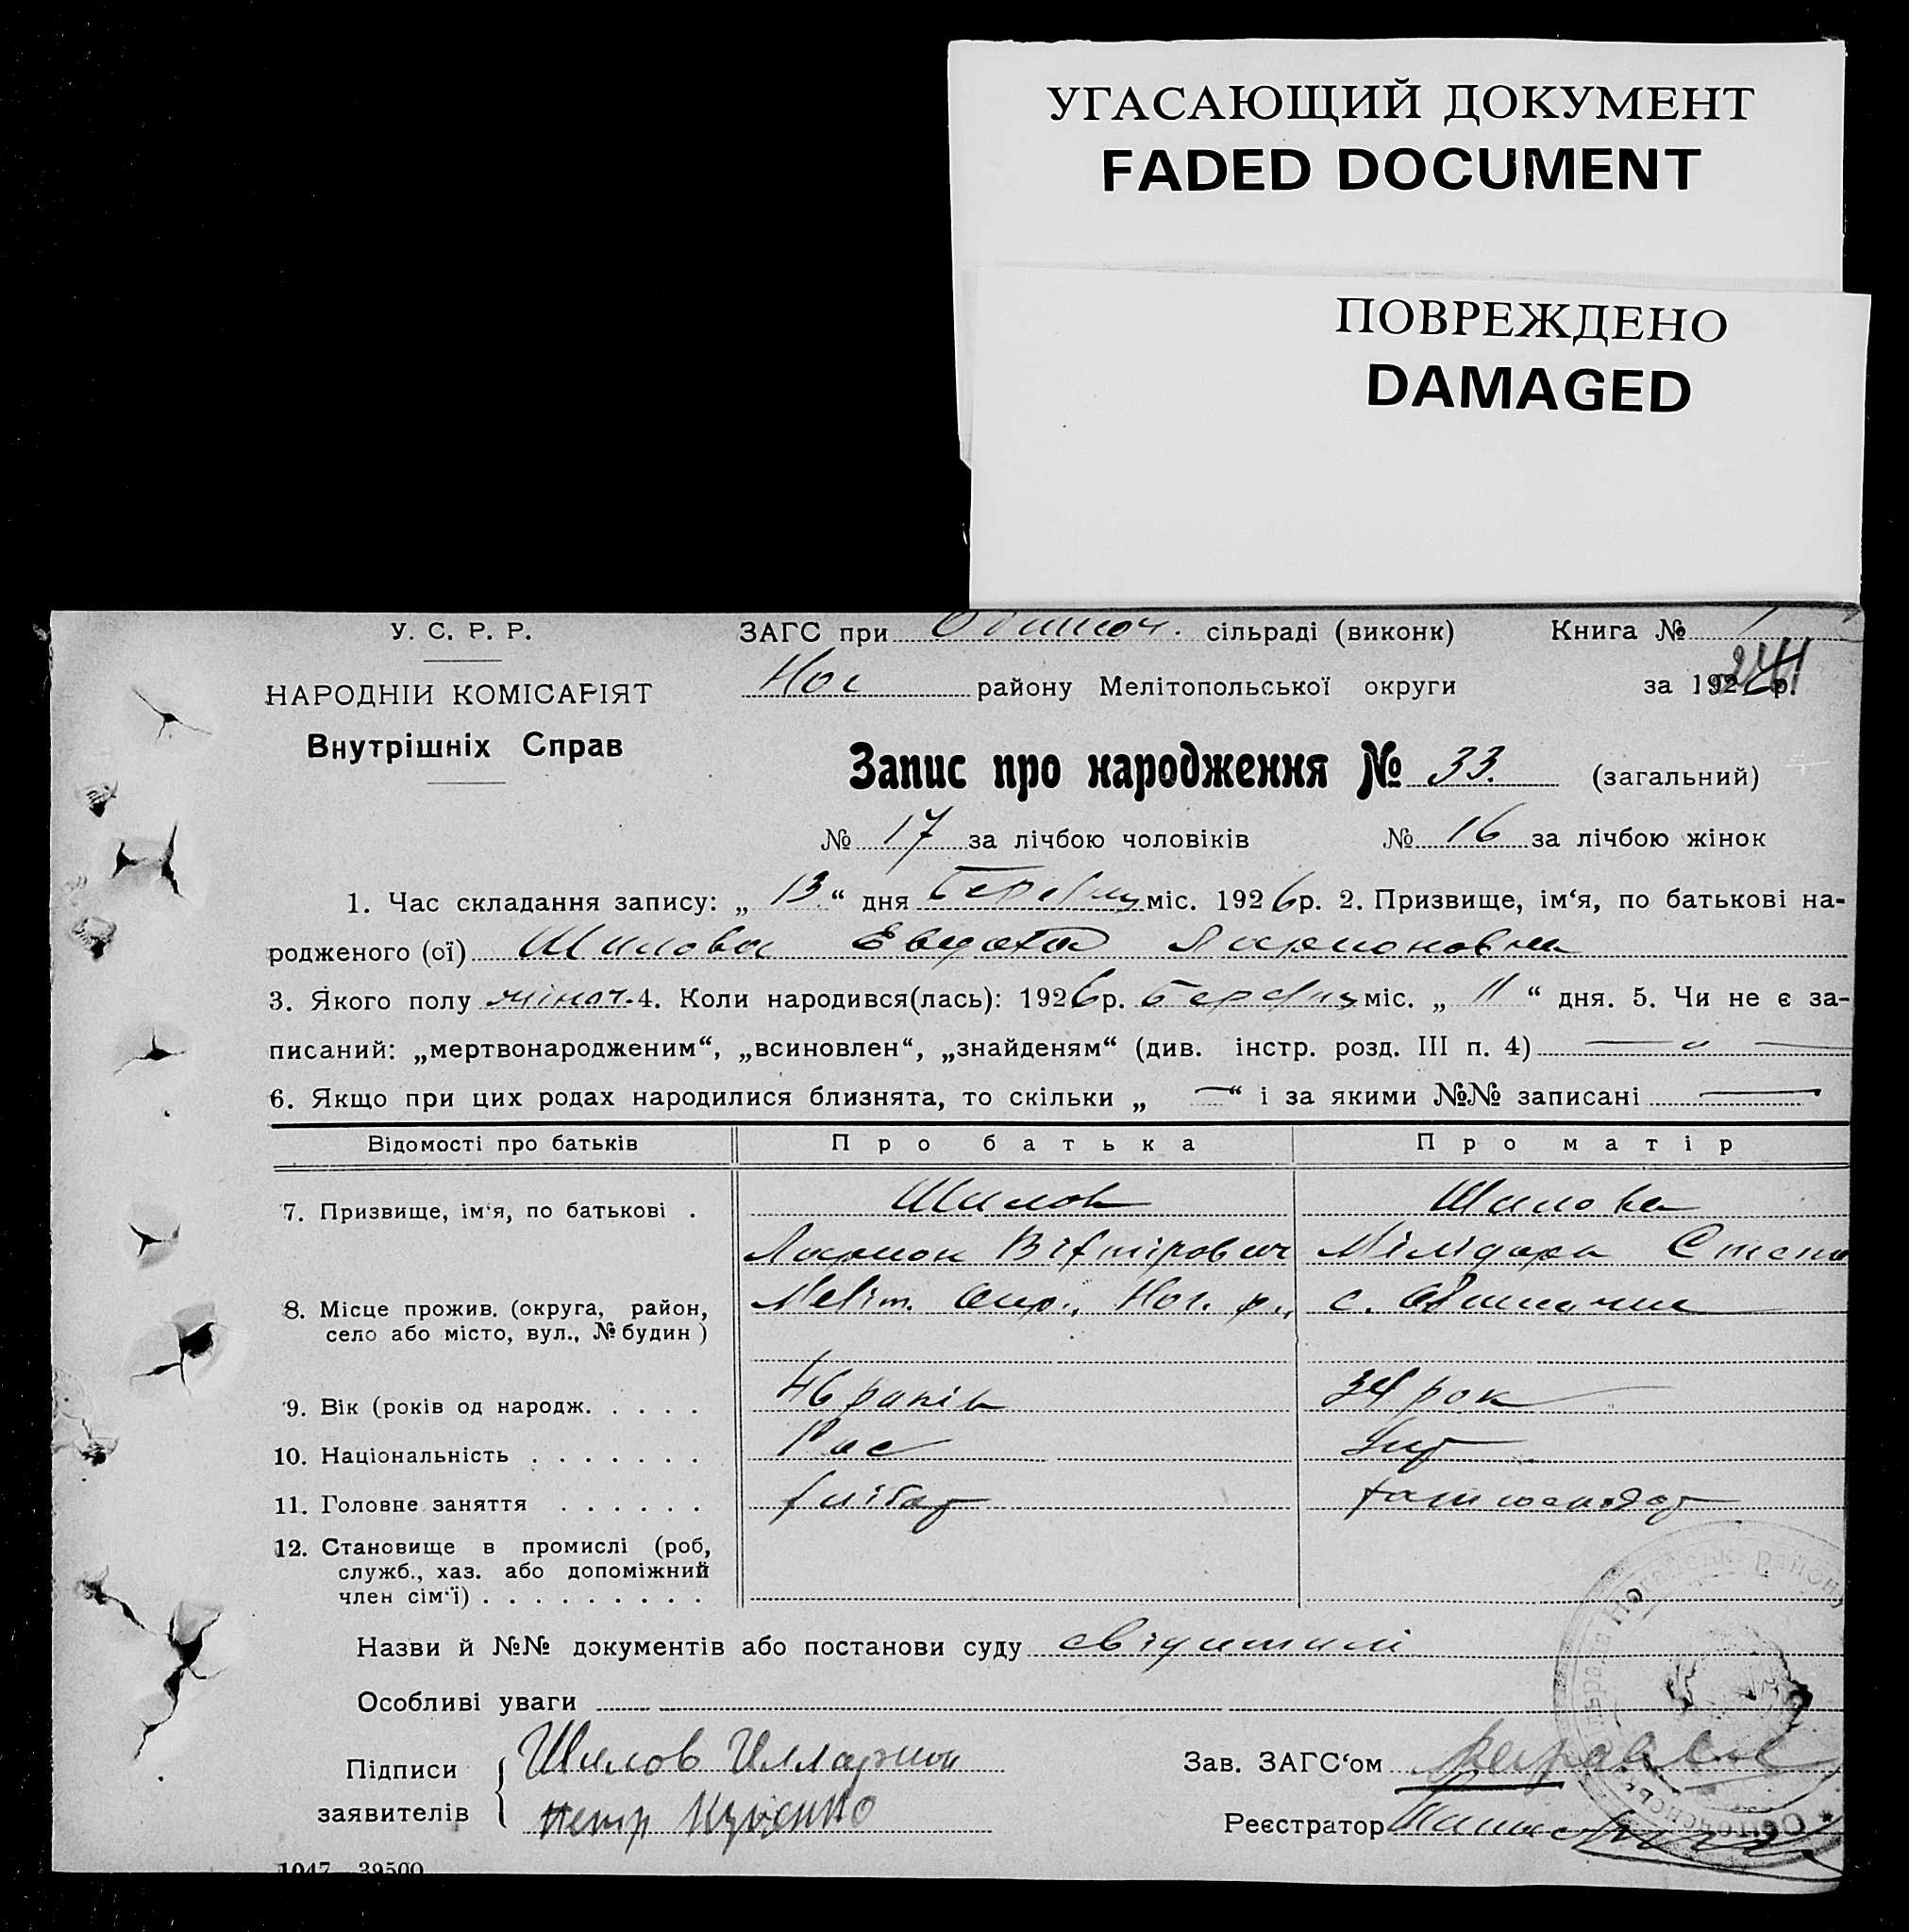 УГАСАЮЩИЙ ДОКУМЕНТ
FADED DOCUMENT
ПОВРЕЖДЕНО
DAMAGED
У. С. Р. Р.
НАРОДНІЙ КОМІСАРІЯТ
Внутрішніх Справ
ЗАГС при сільраді (виконк) Книга №
Ног району Мелітопольської округи за 192 р.
Запис про народження № 33. (загальний)
№ 17 за лічбою чоловіків № 16 за лічбою жінок
1. Час складання запису: „ 13 “ дня Березня міс. 1926 р. 2. Призвище, ім‘я, по батькові на-
родженого (ої) Шилова Евдокія Ларионовна
3. Якого полу жіноч. 4. Коли народився(лась): 1926 р. Березня міс. „ 11 “ дня. 5. Чи не є за-
писаний: „мертвонародженим“, „всиновлен“, „знайденям“ (див. інстр. розд. III п. 4) —„—
6. Якщо при цих родах народилися близнята, то скільки „ — “ і за якими №№ записані —
Відомості про батьків Про батька Про матір
7. Призвище, ім‘я, по батькові . Шилов Шилова
Ларион Вікторович
8. Місце прожив. (округа, район, Меліт. окр., Ног. р., с.
село або місто, вул., № будин )
9. Вік (років од народж. . . . . 46 років 34 рок
10. Національність . . . . . . . Рос Укр
11. Головне заняття . . . . . . хлібор
12. Становище в промислі (роб,
служб., хаз. або допоміжний
член сім‘ї) . . . . . . . . .
Назви й №№ документів або постанови суду свідителі
Особливі уваги
Підписи Шилов Илларион
заявителів Петр
Зав. ЗАГС‘ом
Реєстратор
1047—39500